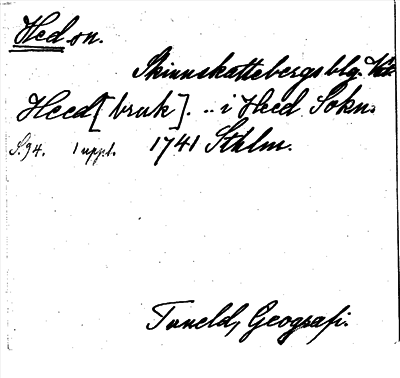 Hed sn.
Skinnskattebergs blg. Vstm.
Heed [bruk]. .. i Heed Sokn.
S. 94. 1 uppl. 1741 Sthlm.
Tuneld, Geografi.